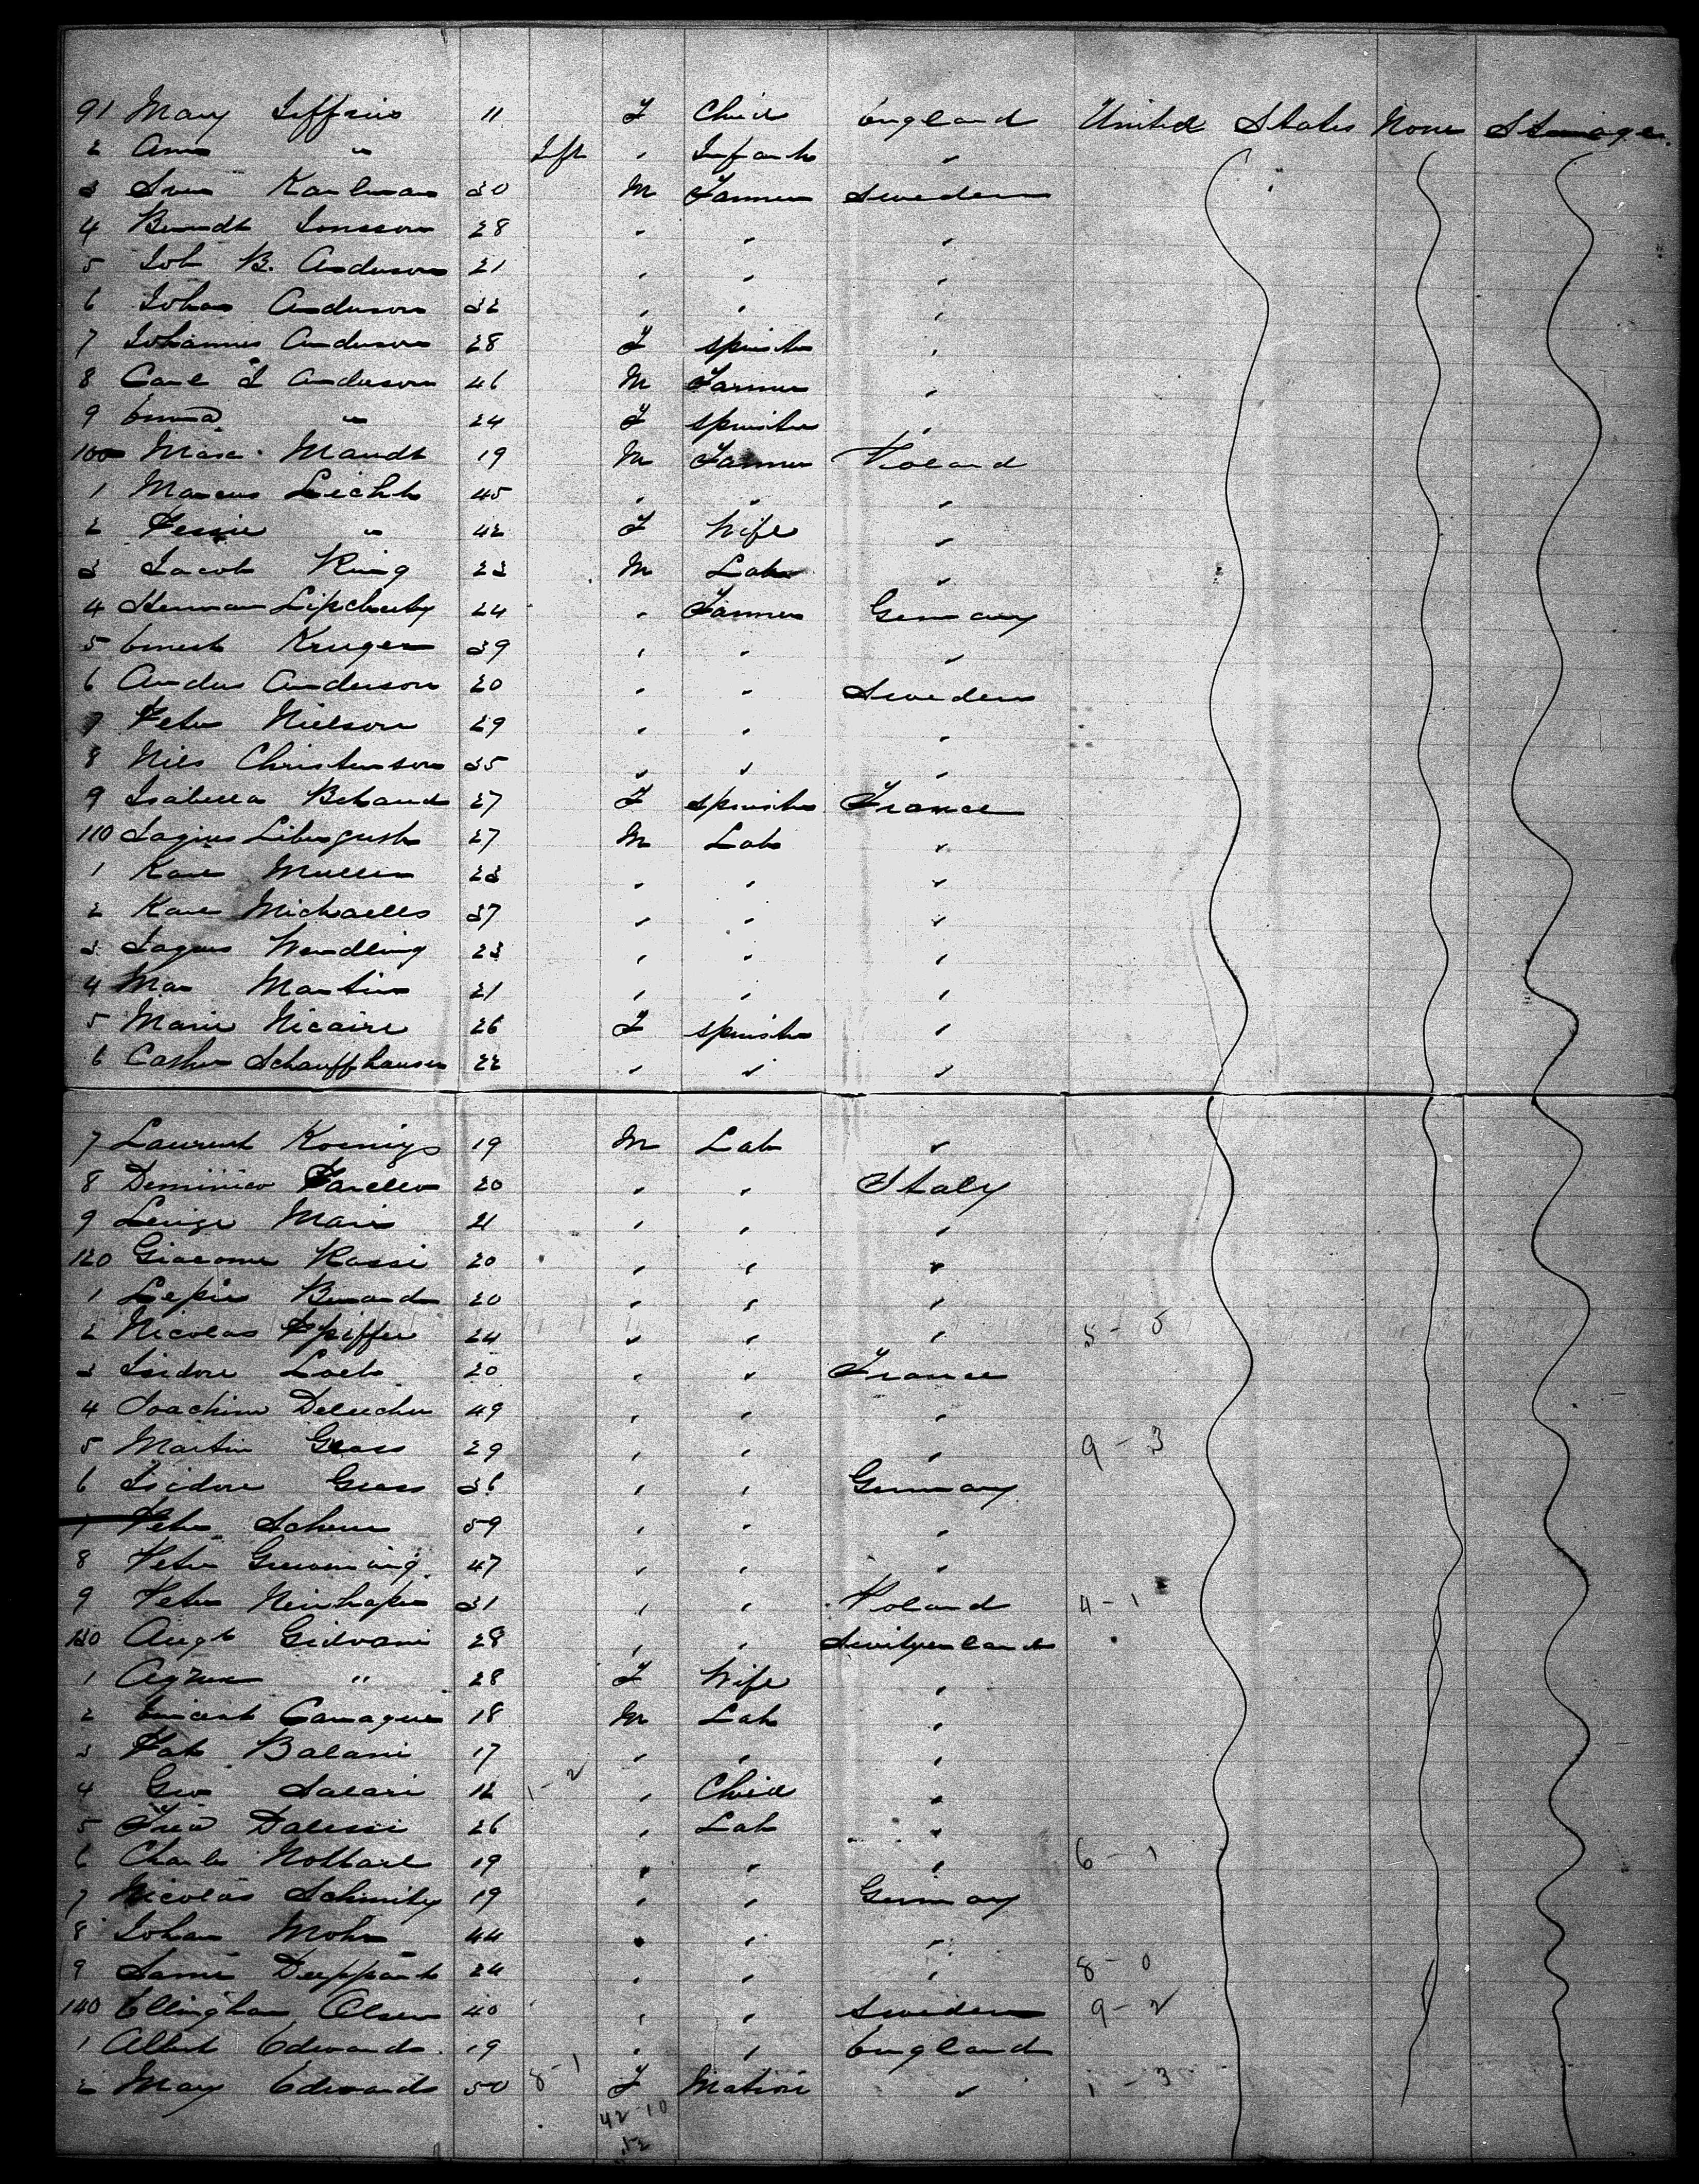 91 Mary Jeffries 11 F Child England United States None Steerage
2 Ann " Inft " Infant "
3 Sven Karlman 30 M Farmer Sweden
4 Berndt Jonsson 28 " " "
5 Joh B. Anderson 21 " " "
6 Johan Anderson 32 " " "
7 Johannes Anderson 28 F spinster "
8 Carl J Anderson 46 M Farmer "
9 Emma " 24 F spinster "
100 Max Mandt 19 M Farmer Poland
1 Marcus Licht 45 " " "
2 Pessie " 42 F Wife "
3 Jacob Ring 23 M Lab "
4 Herman 24 " Farmer Germany
5 Ernest Kruger 39 " " "
6 Andus Anderson 20 " " Sweden
7 Peter Nielson 29 " " "
8 Nils Christenson 35 " " "
9 Isabella 27 F spinster France
110 27 M Lab "
1 Karl Muller 23 " " "
2 Karl Michaells 37 " " "
3 Wendling 23 " " "
4 Max Martin 21 " " "
5 Marie Nicaire 26 F spinster "
6 Schauffhauser 22 " " "
7 Laurent Koenigs 19 M Lab "
8 Deminico 20 " " Italy
9 Mari 21 " " "
120 Giacome Rossi 20 " " "
1 20 " " "
2 Nicolas Pfiffer 24 " " " 5 - 5
3 Isidore Loeb 20 " " France
4 Joachim 49 " " "
5 Martin Grass 29 " " " 9 - 3
6 Isidore Gress 36 " " Germany
7 Peter 59 " " "
8 Peter 47 " " "
9 Peter 31 " " Poland 4 - 1
130 Augt Gidvani 28 " " Switzerland
1 " 28 F Wife "
2 Vincent 18 M Lab "
3 Pat Balani 17 " " "
4 Geo Salari 12 1 - 2 " Child "
5 26 " Lab "
6 Charles 19 " " " 6 - 1
7 Nicolas Schmitz 19 " " Germany
8 Johan Mohr 44 " " "
9 24 " " " 8 - 0
140 Ellingham Olsen 40 " " Sweden 9 - 2
1 Albert Edwards 19 " " England
2 Mary Edwards 50 8 - 1 F Matron " 1 - 3
42 - 10
52